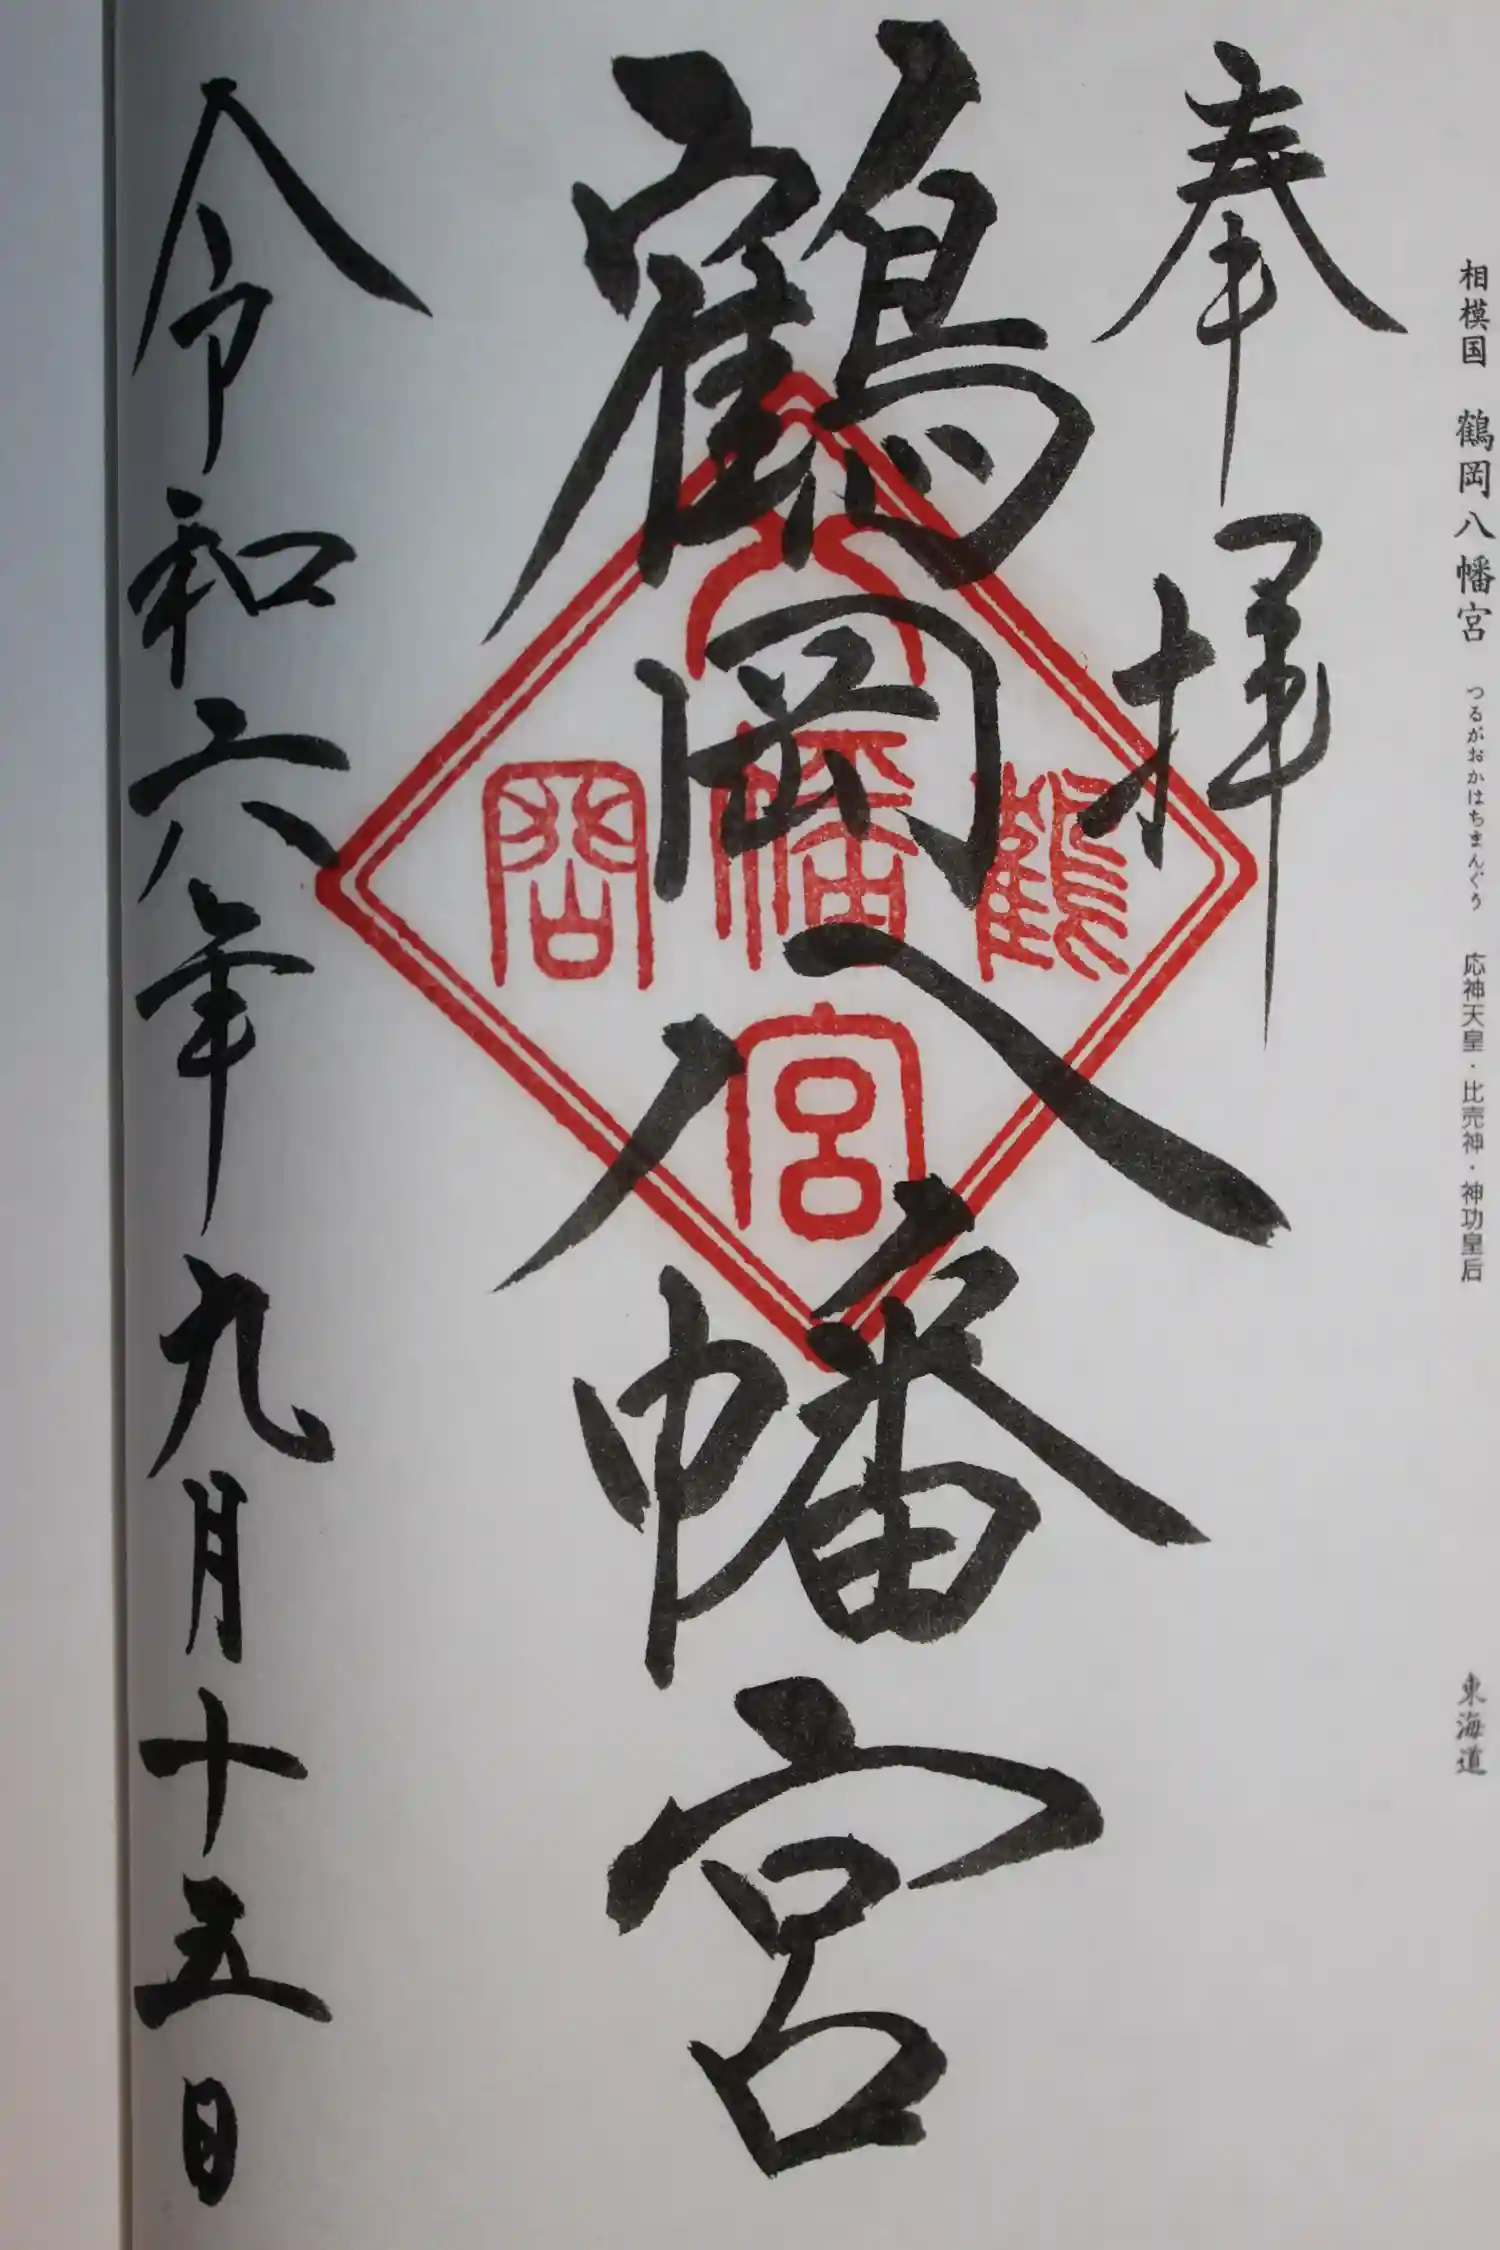 相模国 鶴岡八幡宮 つるがおかはちまんぐう 応神天皇・比売神・神功皇后 東海道
奉拝
鶴岡八幡宮
鶴岡八幡宮
令和六年九月十五日